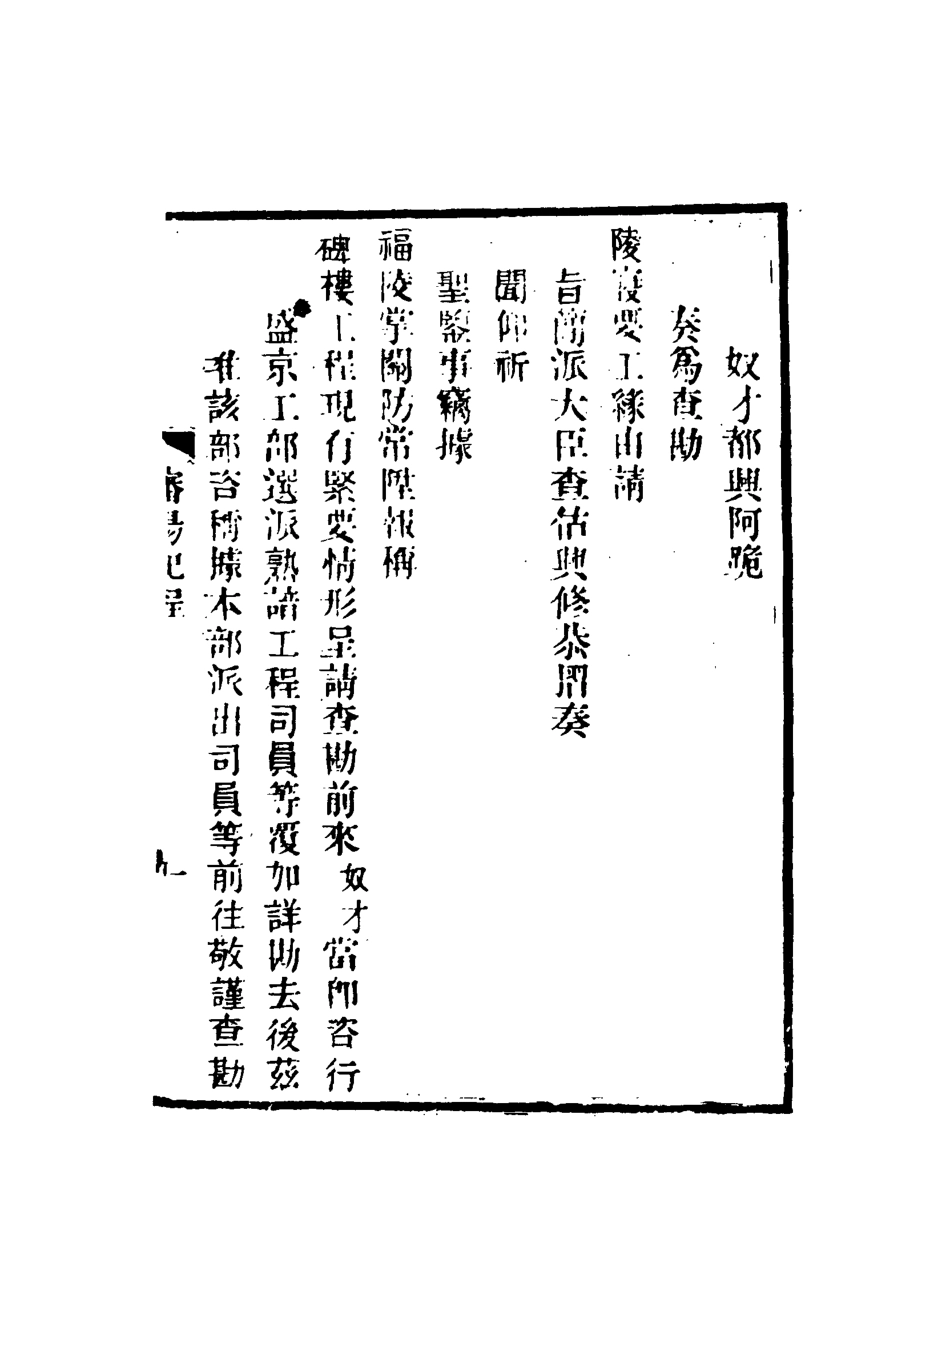 奴才都興阿跪
奏爲查勘
陵寢要工緣由請
旨簡派大臣查估興修恭摺奏
聞仰祈
聖鑒事竊據
福陵掌關防常陞報稱
碑樓工程現有緊要情形呈請查勘前來奴才當卽咨行
盛京工部選派熟諳工程司員等覆加詳勘去後茲
准該部咨稱據本部派出司員等前往敬謹查勘
瀋陽紀程
九